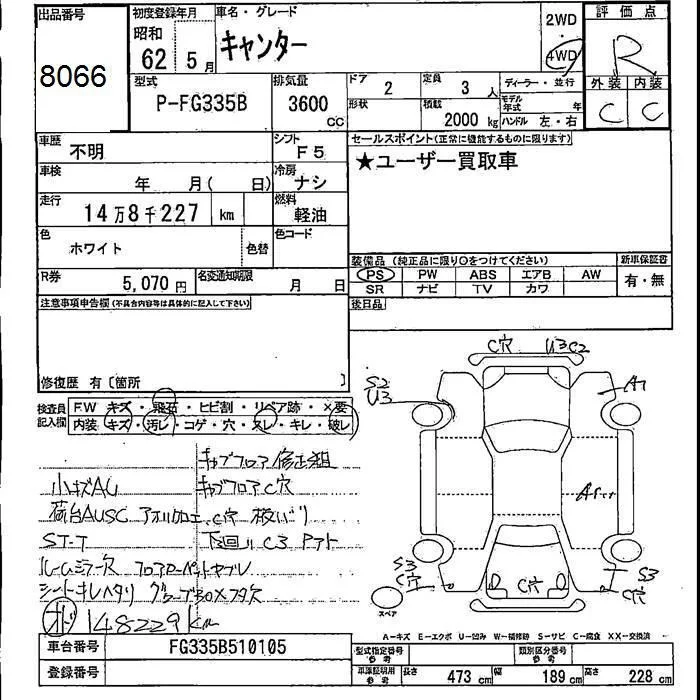 出品番号
8066
初度登録年月
昭和
62年 5月
車名・グレード
キャンター
2WD
4WD
評価点
R
外装 内装
C C
型式
P-FG335B
排気量
3600
CC
ドア
2
定員
3人
ディーラー・並行
形状
積載
2000 kg
モデル年式 年
ハンドル 左・右
車歴
不明
シフト
F5
セールスポイント(正常に機能するものに限ります)
★ユーザー買取車
車検
年 月( 日)
冷房
ナシ
走行
14万8千227 km
燃料
軽油
色
ホワイト
色替
色コード
装備品(純正品に限り○をつけてください)
新車保証書
PS PW ABS エアB AW
有・無
SR ナビ TV カワ
R券
5,070円
名変通知期限
月 日
後日品
注意事項申告欄(不具合内容等は具体的に記入して下さい)
修復歴 有〔箇所 〕
検査員記入欄
F.W キズ・飛石・ヒビ割・リペア跡・×要
内装 キズ・汚レ・コゲ・穴・スレ・キレ・破レ
C穴 U3C2
S2
U3
A1
キャブフロア修正組
小キズAU
キャブフロアC穴
ST-T
下回リC3
148229km
S3
C穴
C穴
S3
C穴
スペア
A-キズ E-エクボ U-凹み W-補修跡 S-サビ C-腐食 XX-交換済
車台番号
FG335B510105
型式指定番号
参考
類別区分番号
参考
登録番号
車庫証明用
参考
長さ 473 cm 幅 189 cm 高さ 228 cm